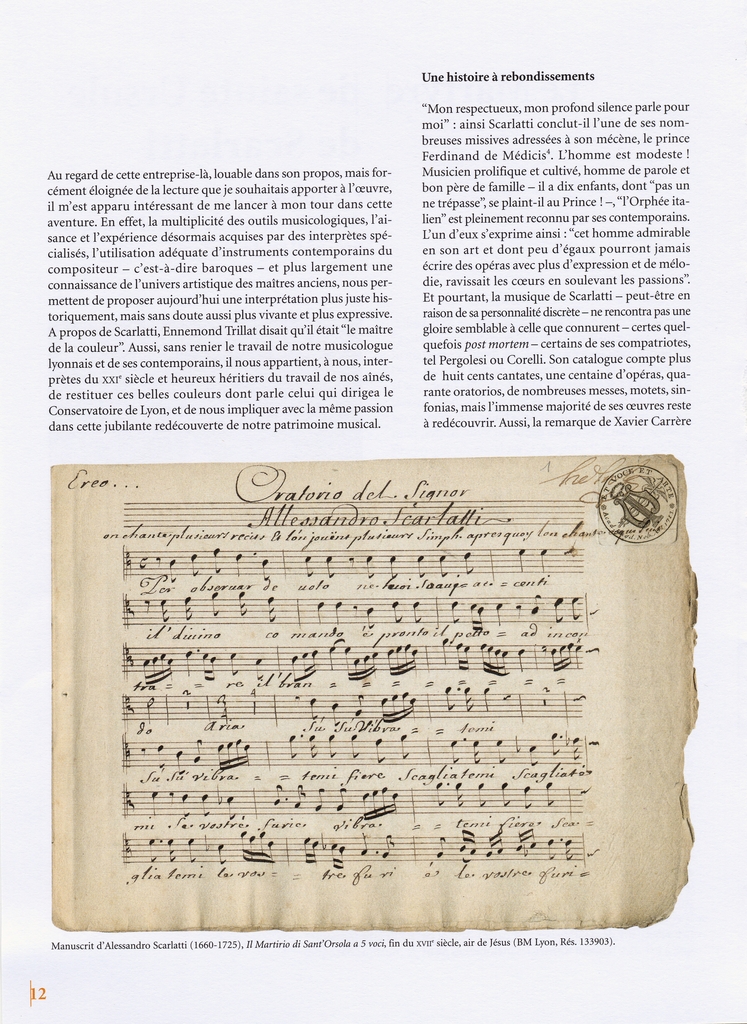 Au regard de cette entreprise-là, louable dans son propos, mais for-
cément éloignée de la lecture que je souhaitais apporter à l'œuvre,
il m'est apparu intéressant de me lancer à mon tour dans cette
aventure. En effet, la multiplicité des outils musicologiques, l'ai-
sance et l'expérience désormais acquises par des interprètes spé-
cialisés, l'utilisation adéquate d'instruments contemporains du
compositeur – c'est-à-dire baroques – et plus largement une
connaissance de l'univers artistique des maîtres anciens, nous per-
mettent de proposer aujourd'hui une interprétation plus juste his-
toriquement, mais sans doute aussi plus vivante et plus expressive.
A propos de Scarlatti, Ennemond Trillat disait qu'il était "le maître
de la couleur". Aussi, sans renier le travail de notre musicologue
lyonnais et de ses contemporains, il nous appartient, à nous, inter-
prètes du XXIe siècle et heureux héritiers du travail de nos aînés,
de restituer ces belles couleurs dont parle celui qui dirigea le
Conservatoire de Lyon, et de nous impliquer avec la même passion
dans cette jubilante redécouverte de notre patrimoine musical.
Une histoire à rebondissements
"Mon respectueux, mon profond silence parle pour
moi" : ainsi Scarlatti conclut-il l'une de ses nom-
breuses missives adressées à son mécène, le prince
Ferdinand de Médicis4. L'homme est modeste !
Musicien prolifique et cultivé, homme de parole et
bon père de famille – il a dix enfants, dont "pas un
ne trépasse", se plaint-il au Prince ! –, "l'Orphée ita-
lien" est pleinement reconnu par ses contemporains.
L'un d'eux s'exprime ainsi : "cet homme admirable
en son art et dont peu d'égaux pourront jamais
écrire des opéras avec plus d'expression et de mélo-
die, ravissait les cœurs en soulevant les passions".
Et pourtant, la musique de Scarlatti – peut-être en
raison de sa personnalité discrète – ne rencontra pas une
gloire semblable à celle que connurent – certes quel-
quefois post mortem – certains de ses compatriotes,
tel Pergolesi ou Corelli. Son catalogue compte plus
de huit cents cantates, une centaine d'opéras, qua-
rante oratorios, de nombreuses messes, motets, sin-
fonias, mais l'immense majorité de ses œuvres reste
à redécouvrir. Aussi, la remarque de Xavier Carrère
Ereo...
1
Oratorio del Signor
Allessandro Scarlatti
on chante plusieurs recits Et l'on jouënt plusieurs Simph. apres quoy l'on chante
ET VOCE ET ARTE
Per observar de
il divino co mando é pronto il petto = ad incon
tra = = re il bran = = = = =
do Aria Su Su Vibra = = temi
Su Su vibra = = temi fiere Scagliatemi Scagliate
mi le vostre furie vibra = = temi fiere Sca=
gliatemi le vos = = tre furi é le vostre furi=
Manuscrit d'Alessandro Scarlatti (1660-1725), Il Martirio di Sant'Orsola a 5 voci, fin du XVIIe siècle, air de Jésus (BM Lyon, Rés. 133903).
12